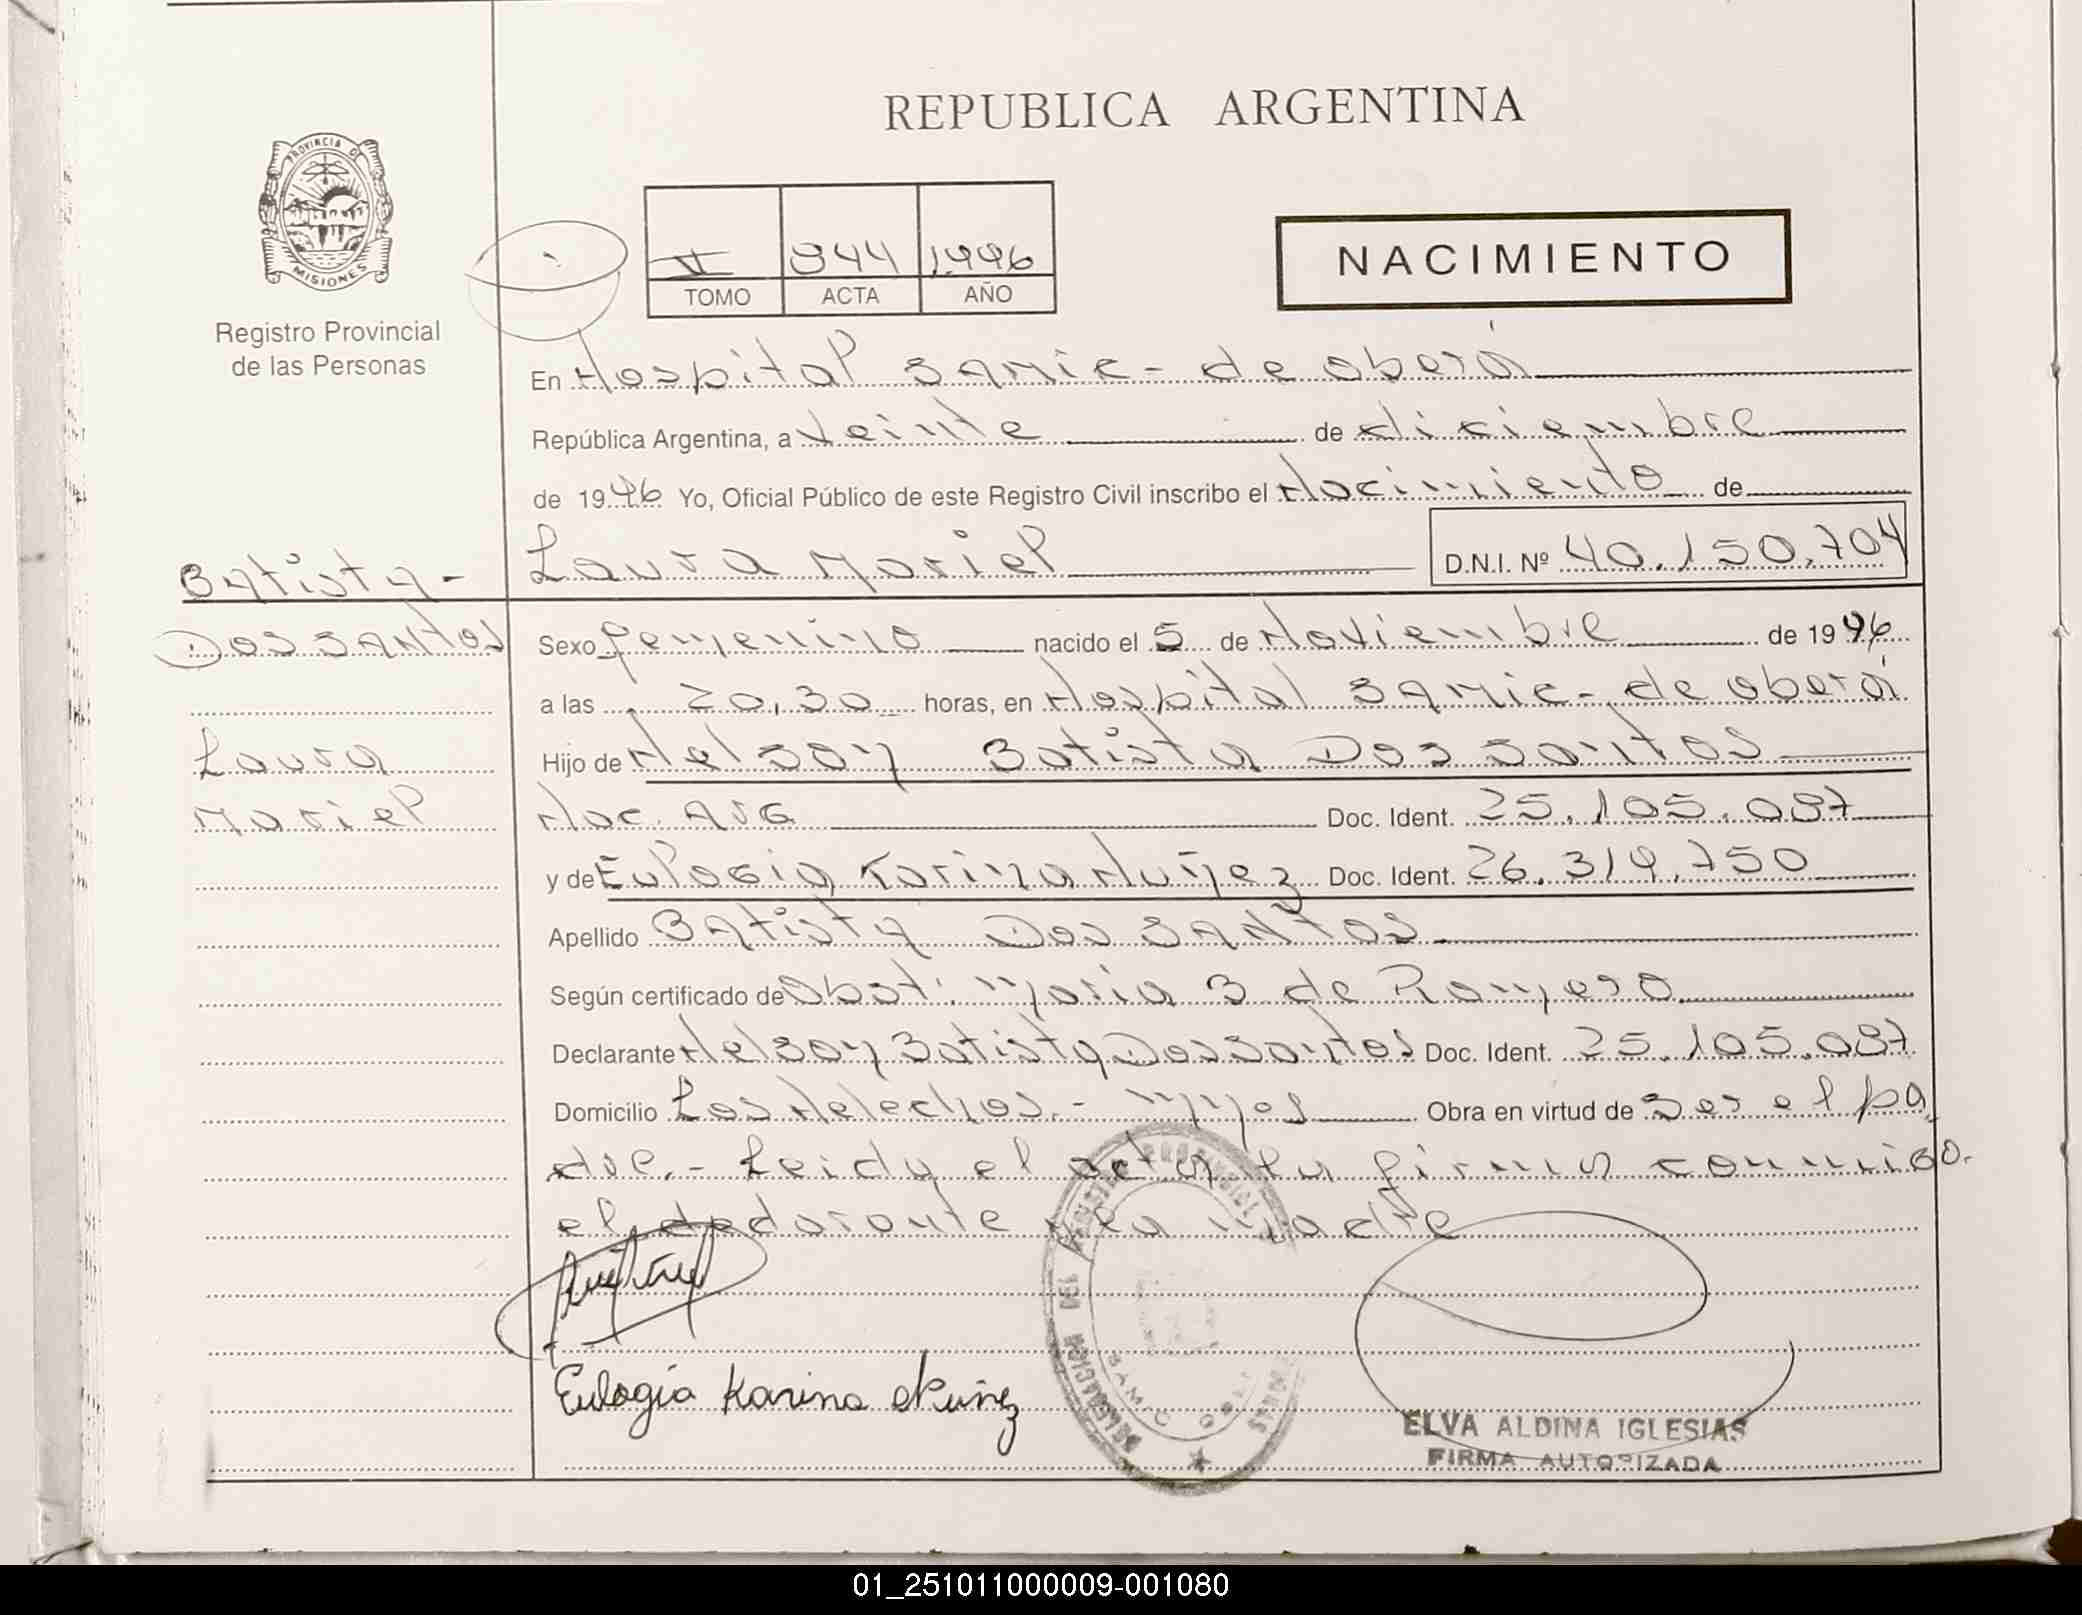 REPUBLICA ARGENTINA
PROVINCIA DE
MISIONES
Registro Provincial
de las Personas
V 944 1996
TOMO ACTA AÑO
NACIMIENTO
En Hospital SAMIC - de Oberá
República Argentina, a veinte de diciembre
de 1996 Yo, Oficial Público de este Registro Civil inscribo el Nacimiento de
Laura Mariel D.N.I. Nº 40.150.704
Batista -
Dos Santos
Laura
Mariel
Sexo femenino nacido el 5 de Noviembre de 1996
a las 20,30 horas, en Hospital SAMIC - de Oberá
Hijo de Nelson Batista Dos Santos
Nac. Arg Doc. Ident. 25.105.087
y de Eulogia Karina Nuñez Doc. Ident. 26.319.750
Apellido Batista Dos Santos
Según certificado de Obst. Maria B de Romero
Declarante Nelson Batista Dos Santos Doc. Ident. 25.105.087
Domicilio Los Helechos.- Mnes Obra en virtud de ser el pa
dre.- Leida el acta la firman conmigo.
el declarante y la madre
Eulogia Karina Nuñez
DELEGACION DEL REGISTRO PROVINCIAL
SAMIC
ELVA ALDINA IGLESIAS
FIRMA AUTORIZADA
01_251011000009-001080